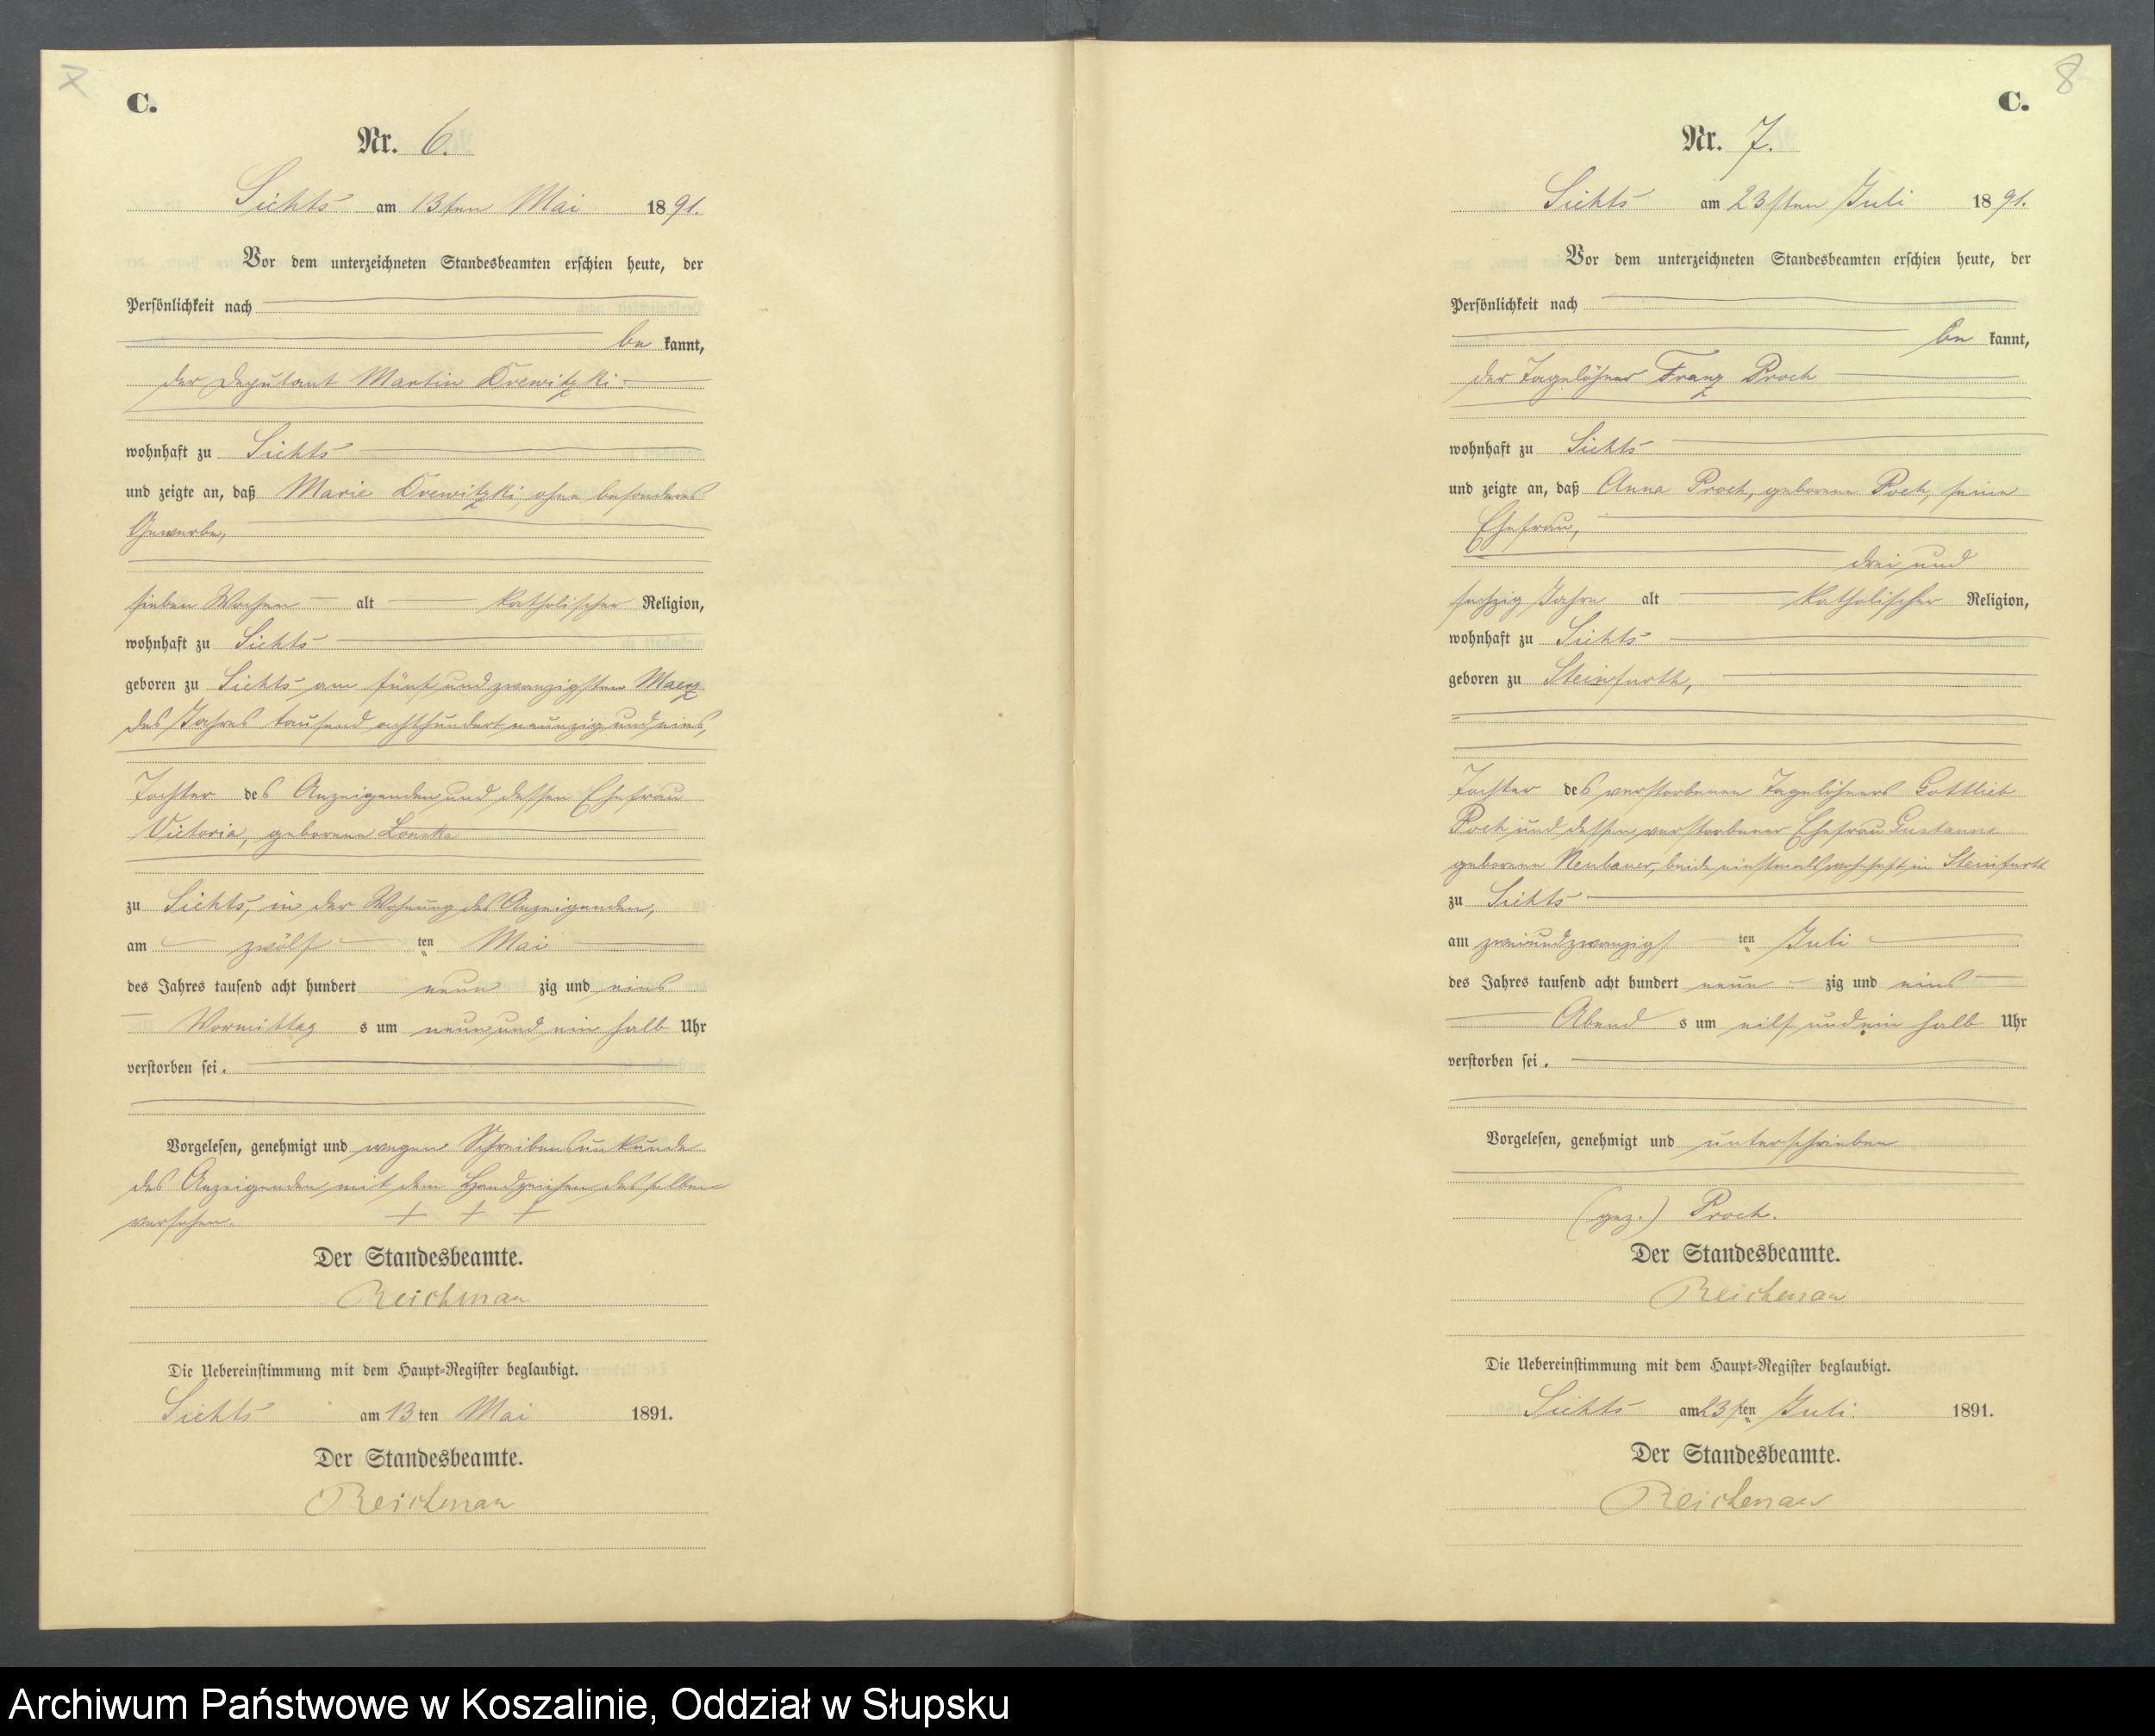 7
C.
Nr. 6.
Sichts am 13ten Mai 1891.
Vor dem unterzeichneten Standesbeamten erschien heute, der
Persönlichkeit nach
be kannt,
der Deputant Martin Drewitzki
wohnhaft zu Sichts
und zeigte an, daß Marie Drewitzki, ohne besonderes
Gewerbe,
sieben Wochen alt katholischer Religion,
wohnhaft zu Sichts
geboren zu Sichts am fünfundzwanzigsten Maerz
des Jahres tausend achthundert neunzig und eins,
Tochter des Anzeigenden und dessen Ehefrau
Victoria, geborene Lonska
zu Sichts, in der Wohnung des Anzeigenden,
am zwölf ten Mai
des Jahres tausend acht hundert neun zig und eins
Vormittag s um neun und ein halb Uhr
verstorben sei.
Vorgelesen, genehmigt und wegen Schreibensunkunde
des Anzeigenden mit dem Handzeichen desselben
versehen. + + +
Der Standesbeamte.
Reichenau
Die Uebereinstimmung mit dem Haupt-Register beglaubigt.
Sichts am 13ten Mai 1891.
Der Standesbeamte.
Reichenau
8
C.
Nr. 7.
Sichts am 23sten Juli 1891.
Vor dem unterzeichneten Standesbeamten erschien heute, der
Persönlichkeit nach
be kannt,
der Tagelöhner Franz Proch
wohnhaft zu Sichts
und zeigte an, daß Anna Proch, geborene Poch, seine
Ehefrau,
drei und
sechzig Jahre alt katholischer Religion,
wohnhaft zu Sichts
geboren zu Steinfurth,
Tochter des verstorbenen Tagelöhners Gottlieb
Poch und dessen verstorbener Ehefrau
geborene Neubauer, beide einstmals wohnhaft in Steinfurth
zu Sichts
am zweiundzwanzigs ten Juli
des Jahres tausend acht hundert neun zig und eins
Abend s um eilf und ein halb Uhr
verstorben sei.
Vorgelesen, genehmigt und unterschrieben
(gez.) Proch.
Der Standesbeamte.
Reichenau
Die Uebereinstimmung mit dem Haupt-Register beglaubigt.
Sichts am 23sten Juli 1891.
Der Standesbeamte.
Reichenau
Archiwum Państwowe w Koszalinie, Oddział w Słupsku